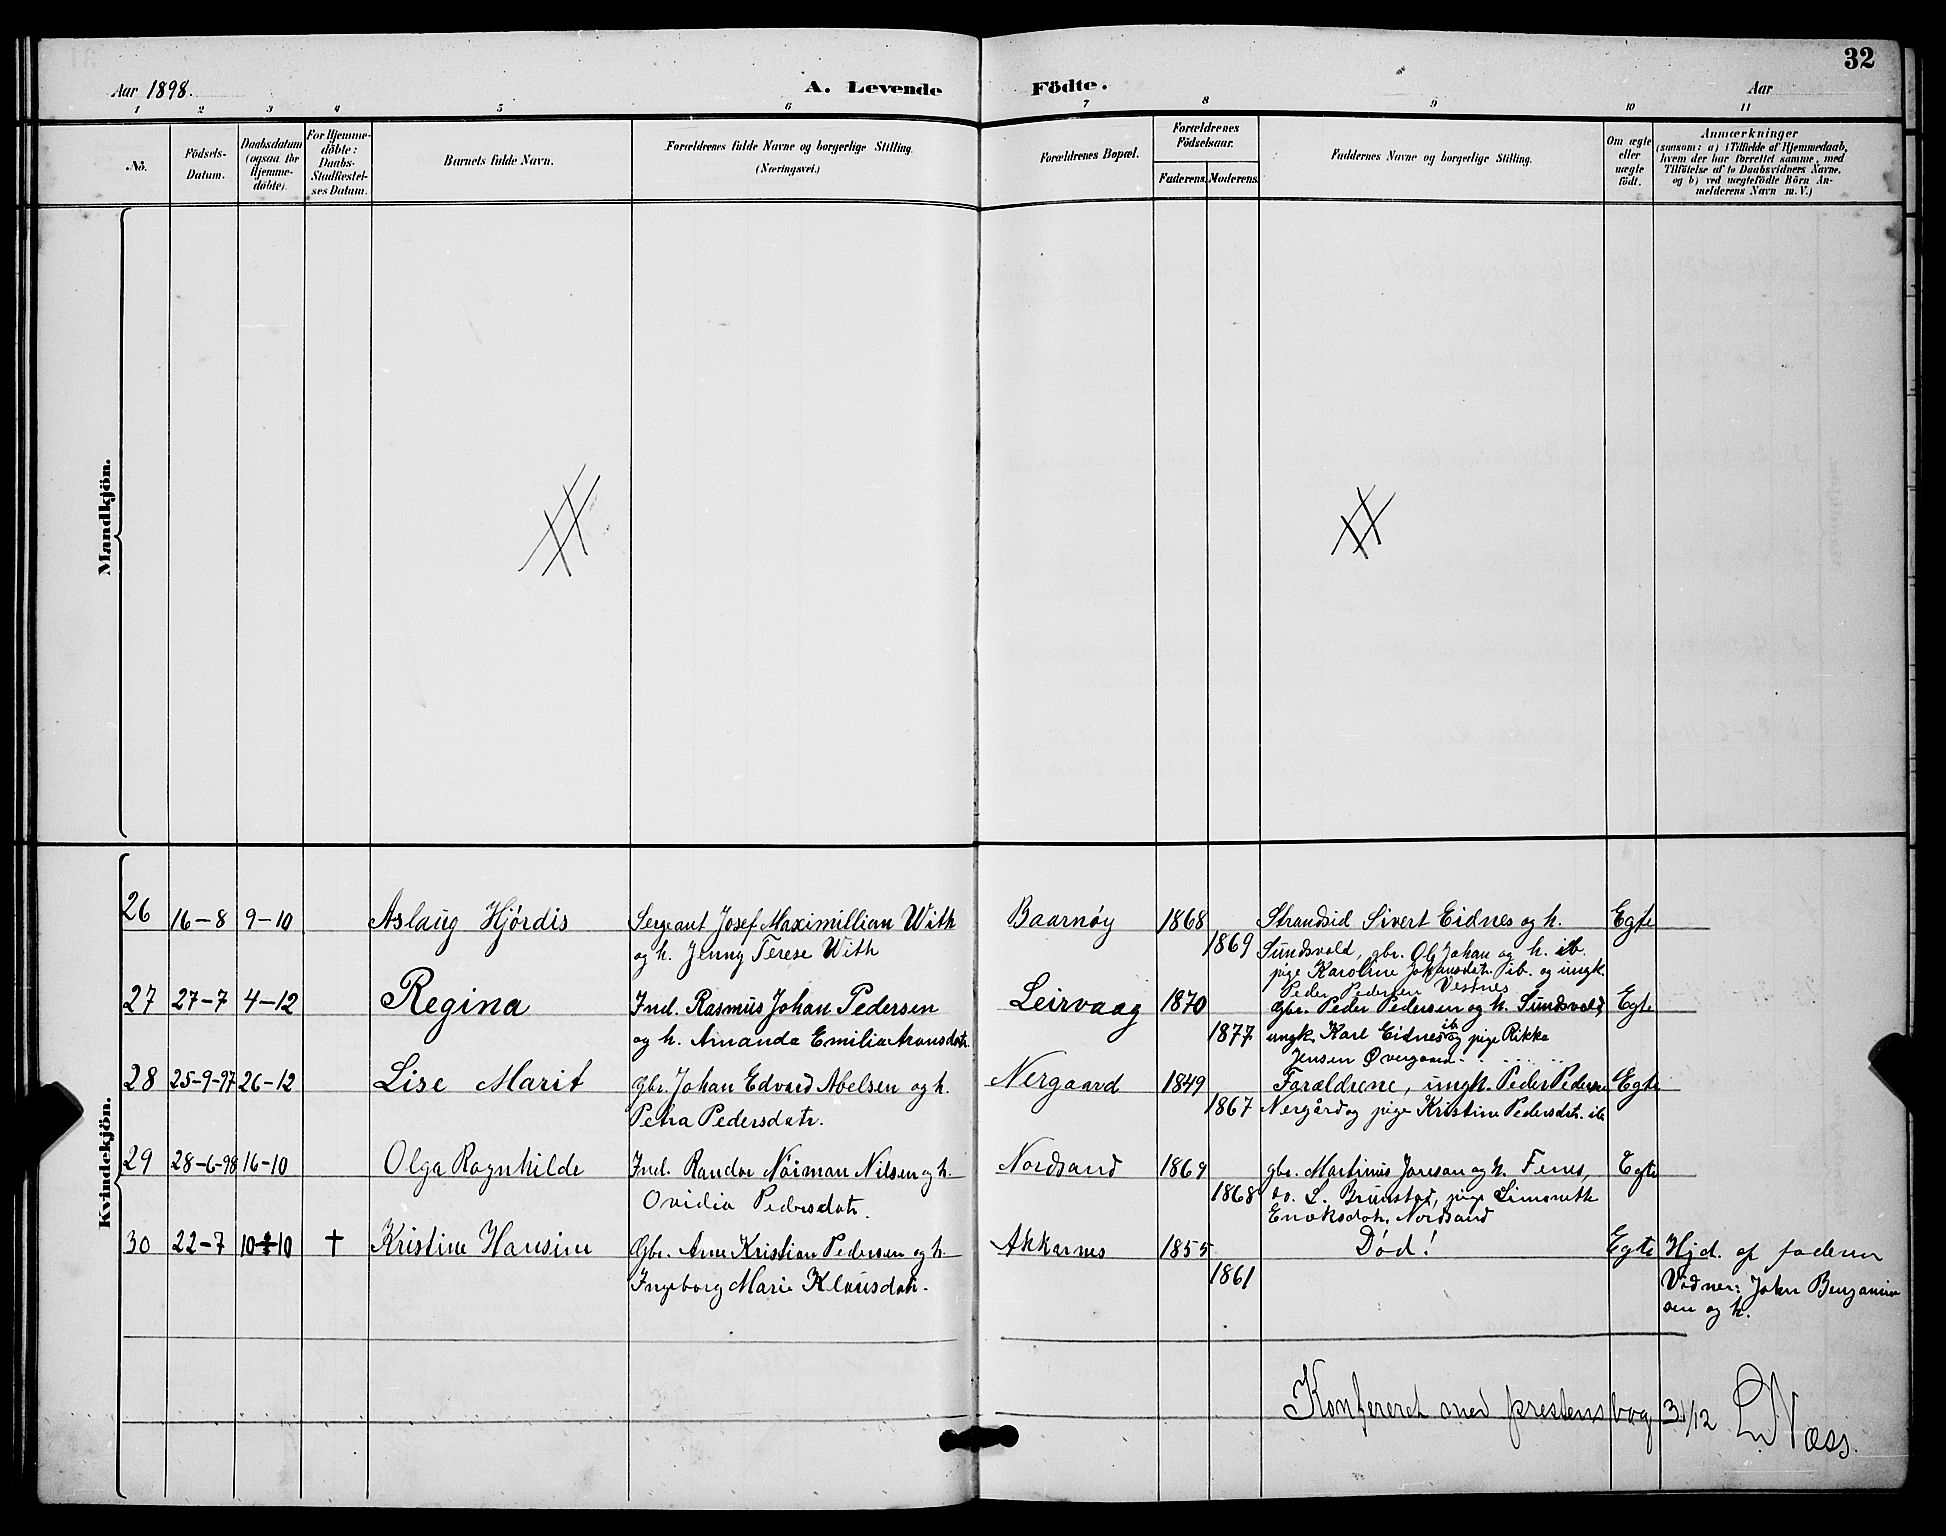 32
Aar 1898. A. Levende Födte. Aar
1 2 3 4 5 6 7 8 9 10 11
No.
Födsels-
Datum.
Daabsdatum
(ogsaa for
Hjemme-
döbte).
For Hjemme-
döbte:
Daabs-
Stadfæstel-
ses Datum.
Barnets fulde Navn.
Forældrenes fulde Navne og borgerlige Stilling.
(Næringsvei.)
Forældrenes Bopæl.
Forældrenes
Födselsaar.
Faderens. Moderens.
Faddernes Navne og borgerlige Stilling.
Om ægte
eller
uægte
födt.
Anmærkninger
(saasom: a) i Tilfælde af Hjemmedaab,
hvem der har forrettet samme, med
Tilföielse af to Daabsvidners Navne,
og b) ved uægtefödte Börn An-
melderens Navn m. V.)
Mandkjön.
Kvindekjön.
26 16-8 9-10 Aslaug Hjórdis
Sergeant Josef Maximillian With
og h. Jenny Terese With
Baarnøy 1868
1869
Strandsid Sivert Eidnes og h.
Sundsvold, gbr. Ol Johan og h. ib.
pige Karoline Johansdatr. ib. og ungk.
Peder Pedersen Vestnes
Egte
27 27-7 4-12 Regina
Ind. Rasmus Johan Pedersen
og h. Amanda Emilia Aronsdatr.
Leirvaag 1870
1877
Gbr. Peder Pedersen og h. Sundsvold,
ungk. Karl Eidnes ib og pige Rikka
Jensen Øvergaard
Egte
28 25-9-97 26-12 Lise Marit
gbr. Johan Edvard Abelsen og h.
Petra Pedersdatr.
Nergaard 1849
1867
Forældrene, ungk. Peder Pedersen
Nergård og pige Kristine Pedersdatr. ib
Egte
29 28-6-98 16-10 Olga Ragnhilde
Ind. Randor Nóiman Nilsen og h.
Ovidia Pedersdatr.
Nordsand 1869
1868
gbr. Martinus Joresan og h. Fenes,
do. L. Brunstad, pige Limoneth
Enoksdatr. Nordsand
Egte
30 22-7 10-10 † Kristine Hansine
Gbr. Arne Kristian Pedersen og h.
Ingeborg Marie Klausdatr.
Akkarnes 1855
1861
Død!
Egte
Hjd. af faderen
Vidner: John Benjamin
sen og h.
Konfereret med prestens bog 31/12 L. Næss.